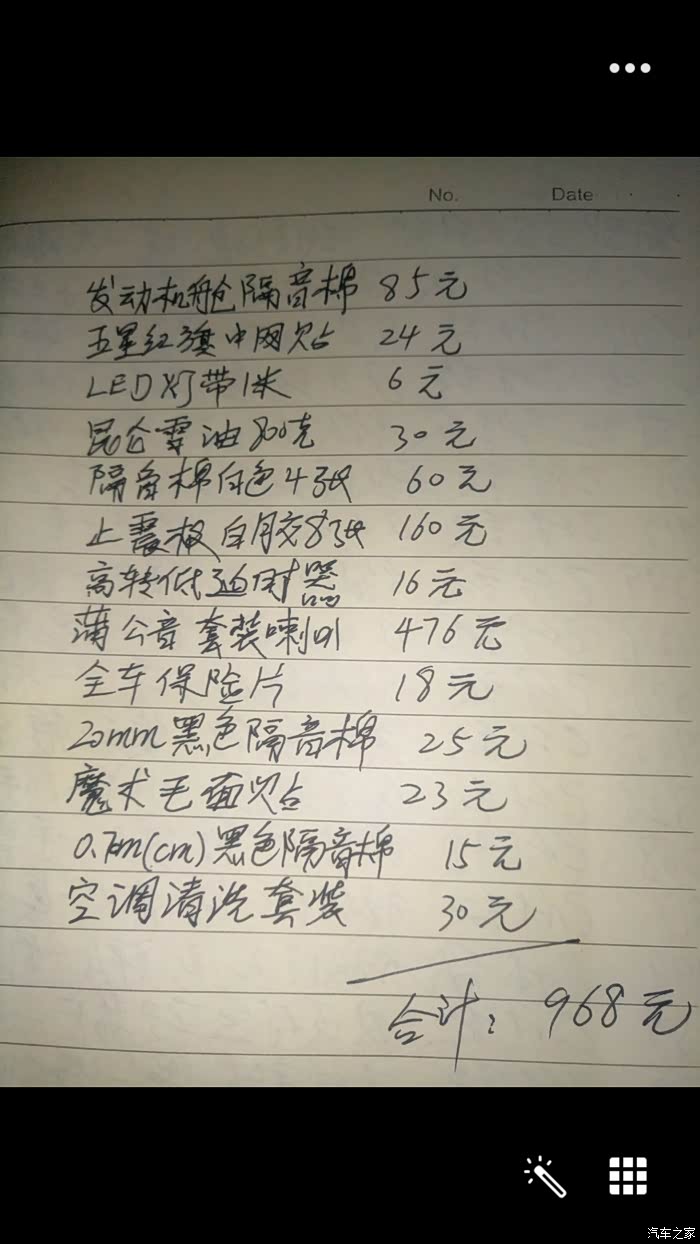 No. Date
发动机舱隔音棉 85元
五星红旗中网贴 24元
LED灯带1米 6元
昆仑雪油800克 30元
隔音棉白色4张 60元
止震板白胶8张 160元
高转低适用器 16元
蒲公音套装喇叭 476元
全车保险片 18元
20mm黑色隔音棉 25元
魔术毛面贴 23元
0.7m(cm)黑色隔音棉 15元
空调清洗套装 30元
合计: 968元
汽车之家